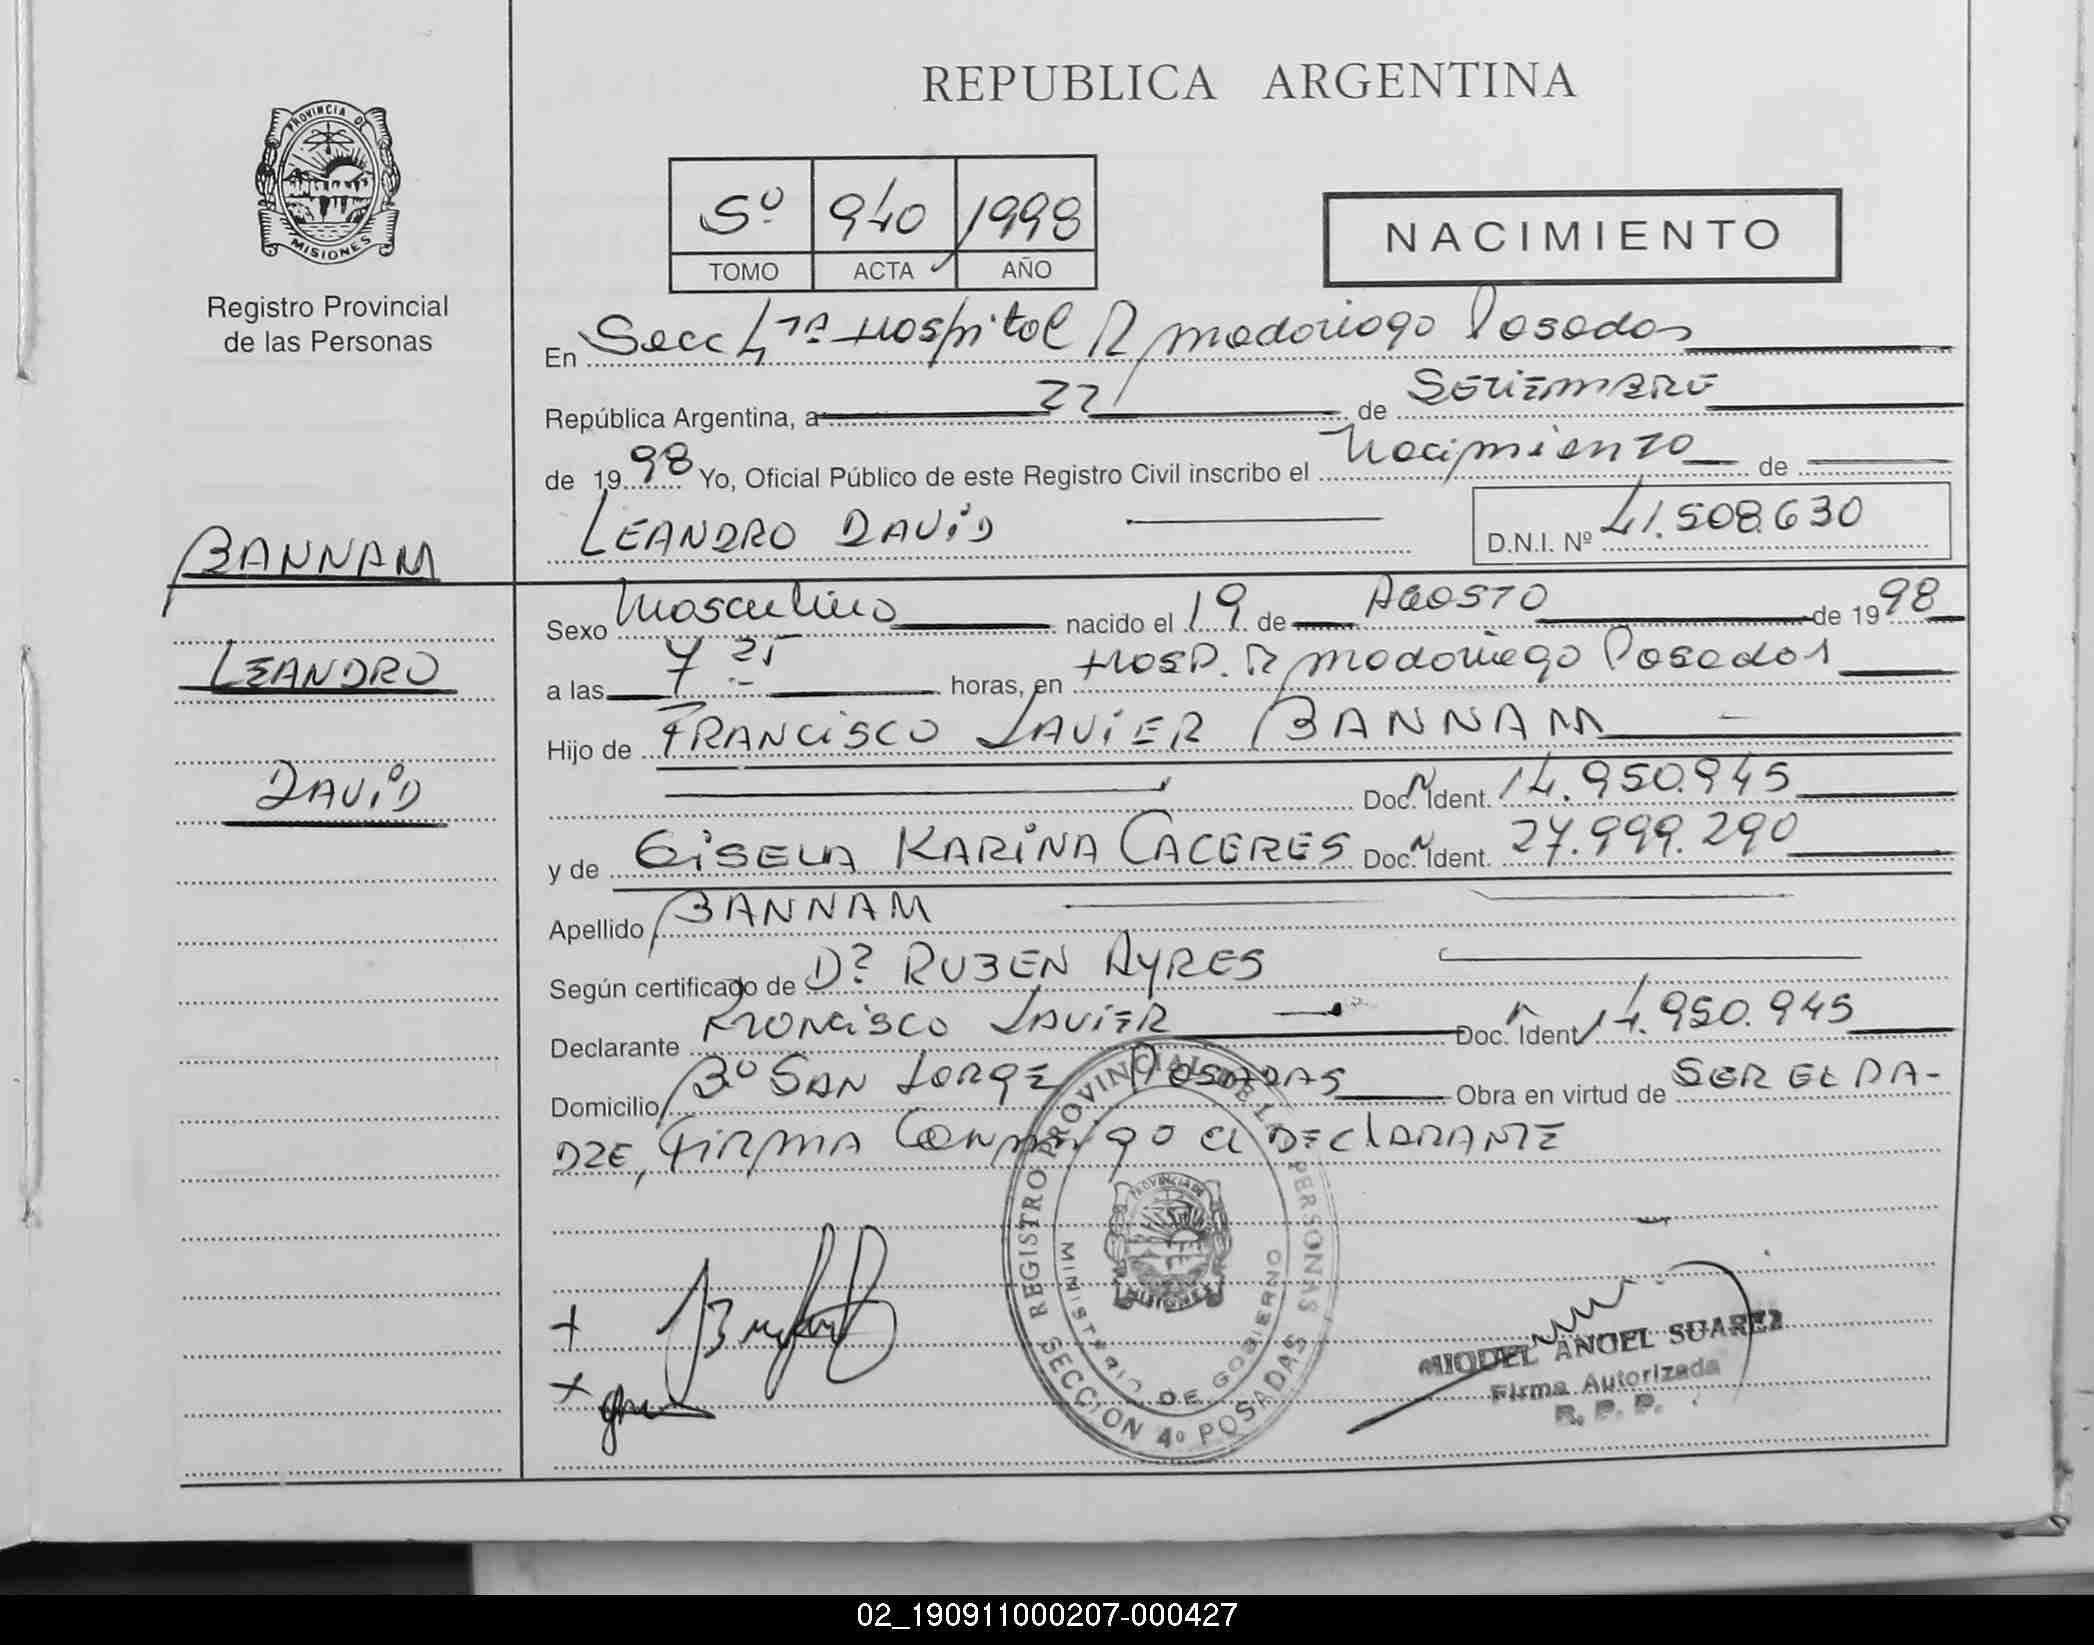 REPUBLICA ARGENTINA
PROVINCIA DE
MISIONES
Registro Provincial
de las Personas
5º 940 1998
TOMO ACTA AÑO
NACIMIENTO
En Secc 4ta Hospital R Madariaga Posadas
República Argentina, a 22 de SETIEMBRE
de 1998 Yo, Oficial Público de este Registro Civil inscribo el Nacimiento de
LEANDRO DAVID D.N.I. Nº 41.508.630
BANNAM
LEANDRO
DAVID
Sexo Masculino nacido el 19 de AGOSTO de 1998
a las 7 25 horas, en HOSP. R Madariaga Posadas
Hijo de FRANCISCO JAVIER BANNAM
Doc. Ident. 14.950.945
y de GISELA KARINA CACERES Doc. Ident. 27.999.290
Apellido BANNAM
Según certificado de Dr RUBEN AYRES
Declarante FRANCISCO JAVIER Doc. Ident 14.950.945
Domicilio Bº SAN JORGE POSADAS Obra en virtud de SER EL PA-
DRE, FIRMA CONMIGO El DEClARANTE
REGISTRO PROVINCIAL DE LAS PERSONAS
MINISTERIO DE GOBIERNO
PROVINCIA DE
MISIONES
SECCION 4º POSADAS
MIGUEL ANGEL SUAREZ
Firma Autorizada
R. P. P.
02_190911000207-000427